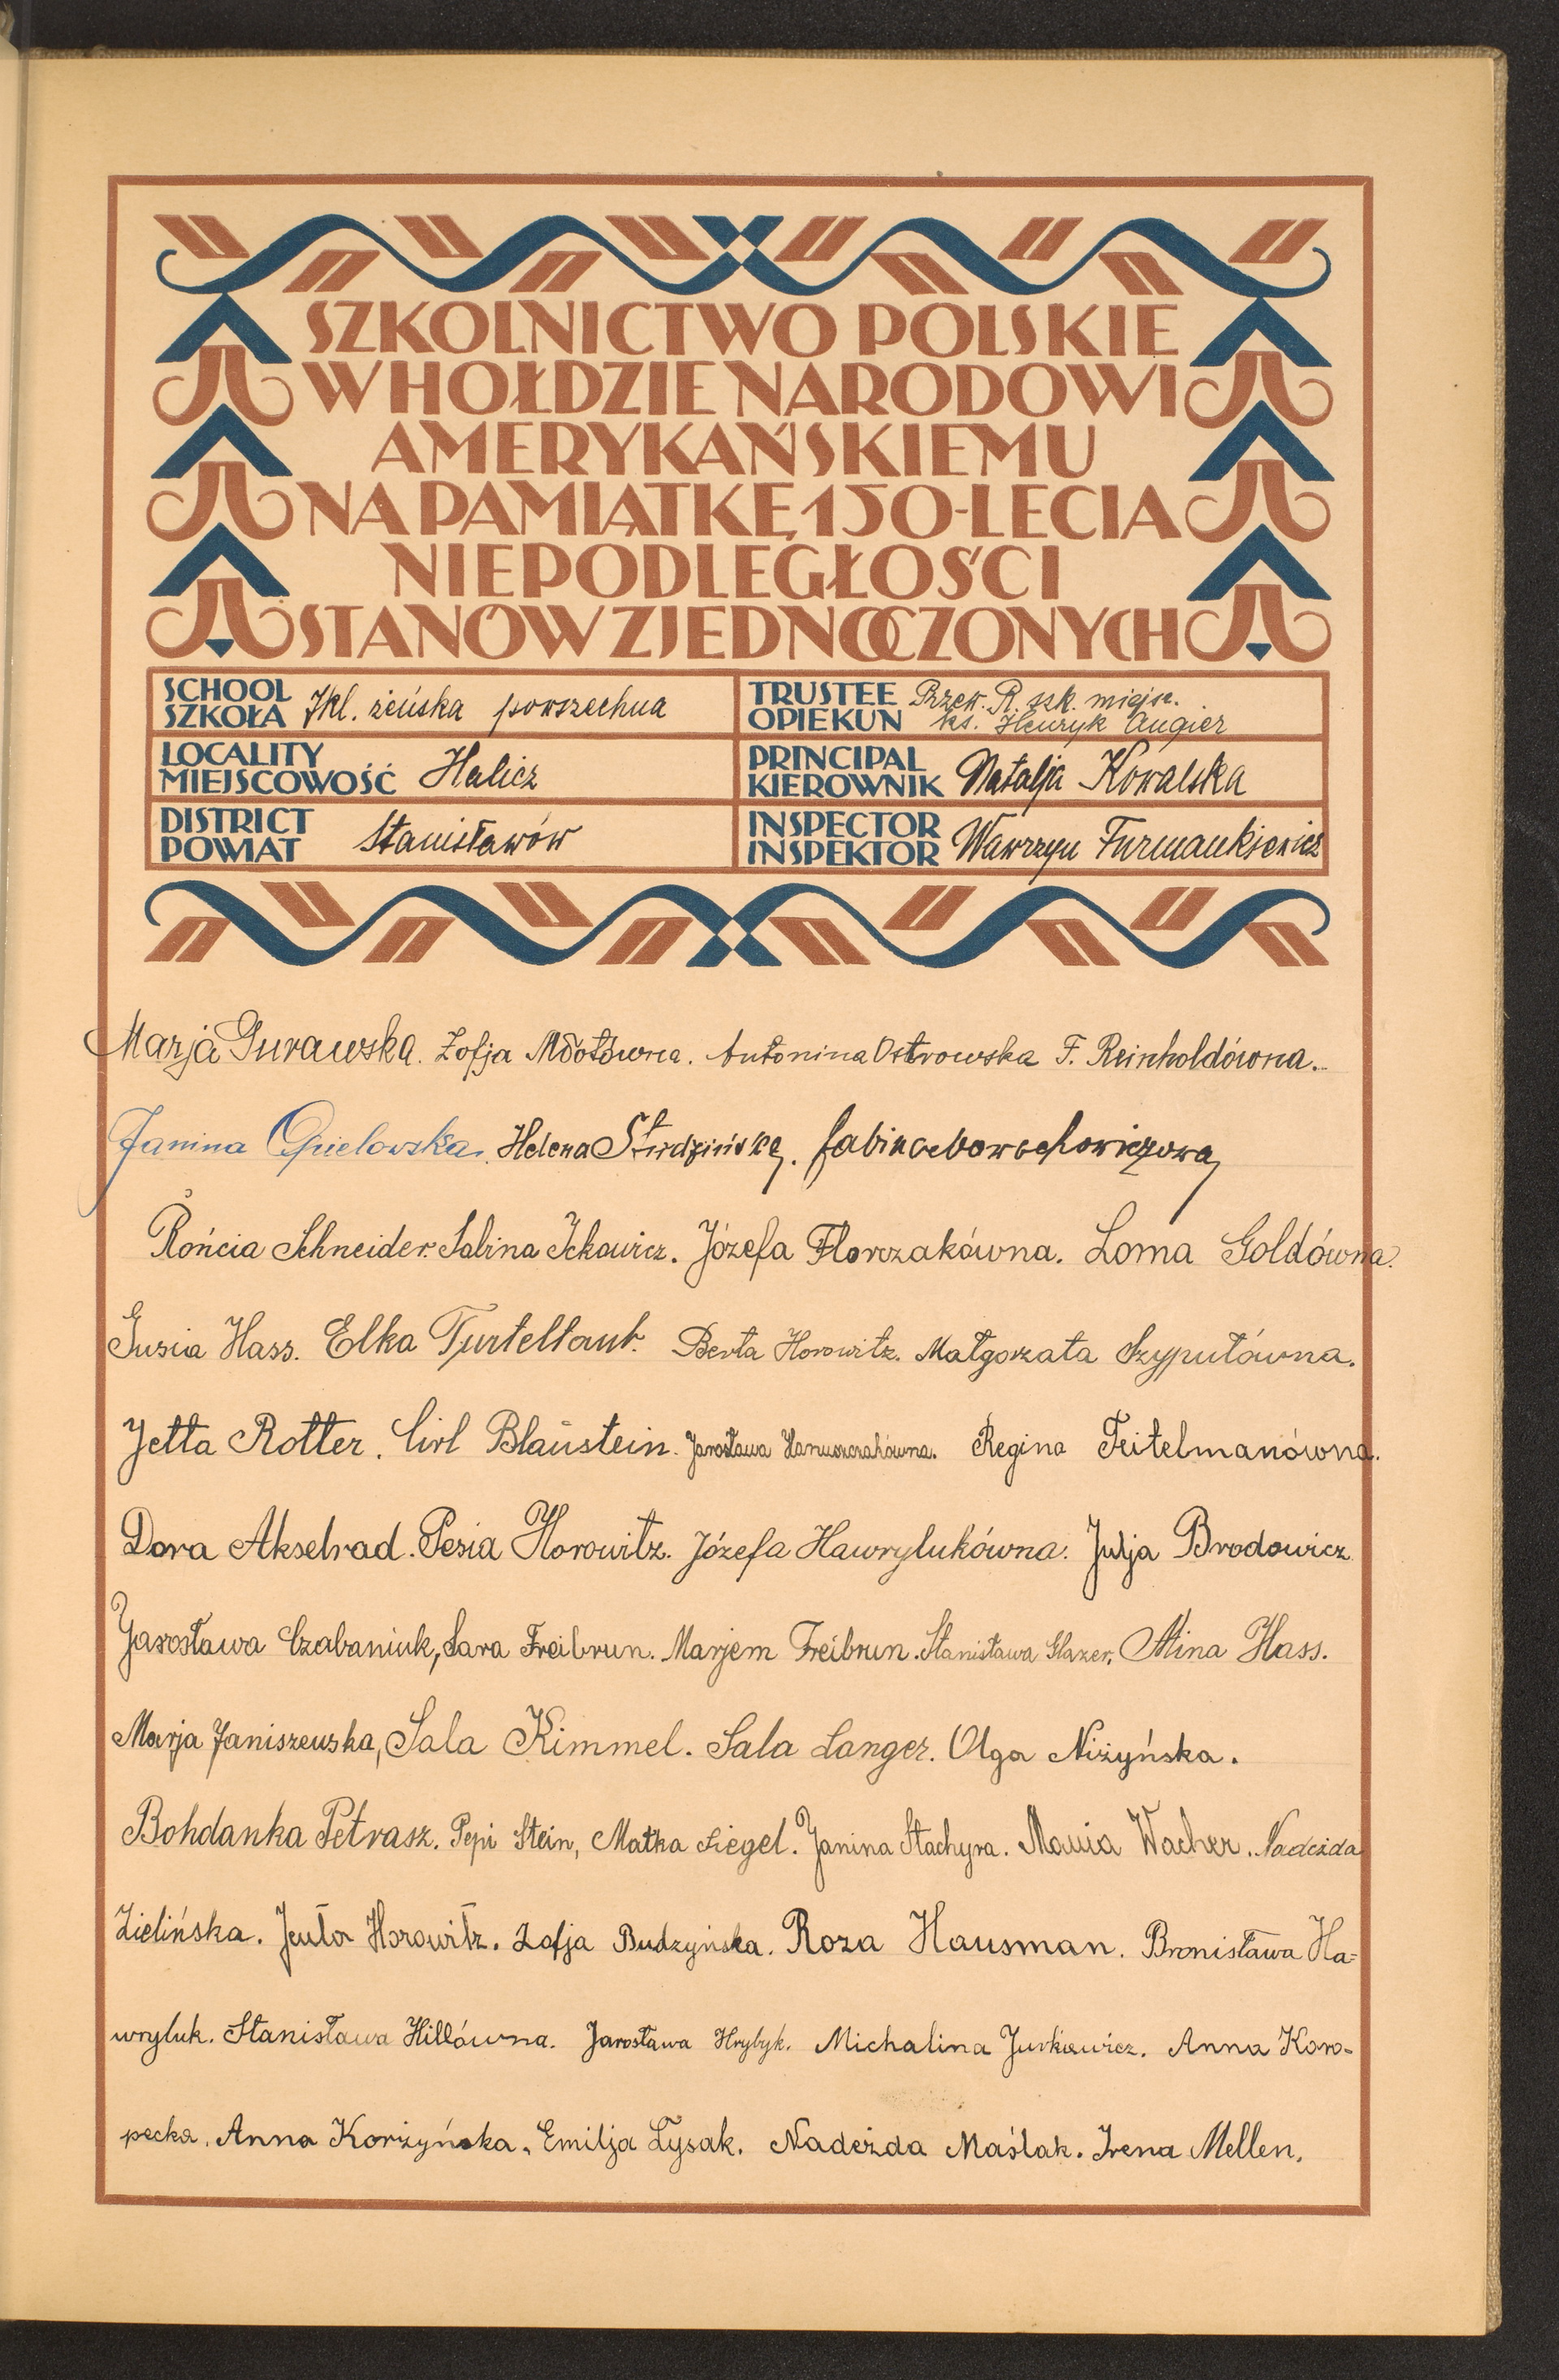 SZKOLNICTWO POLSKIE
W HOŁDZIE NARODOWI
AMERYKAŃSKIEMU
NA PAMIĄTKĘ 150-LECIA
NIEPODLEGŁOŚCI
STANÓW ZJEDNOCZONYCH
SCHOOL
SZKOŁA 7kl. żeńska powszechna
TRUSTEE Przew. R. szk. miejsc.
OPIEKUN ks. Henryk Augier
LOCALITY
MIEJSCOWOŚĆ Halicz
PRINCIPAL
KIEROWNIK Natalja Kowalska
DISTRICT
POWIAT Stanisławów
INSPECTOR
INSPEKTOR Wawrzyn Furmankiewicz
Marja Gurawska. Zofja Młotówna. Antonina Ostrowska F. Reinholdówna.
Janina Opielowska. Helena
Rońcia Schneider. Sabina Ickowicz. Józefa Florczakówna. Loma Goldówna.
Gusia Hass. Elka Turteltaub. Berta Horowitz. Małgorzata Szypułówna.
Jetta Rotter. Cirl Blaustein. Jarosława Hanuszczakówna. Regina Feitelmanówna.
Dora Akselrad. Pesia Horowitz. Józefa Hawrylukówna. Julja Brodowicz
Jarosława Czabaniuk, Sara Freibrun. Marjem Freibrun. Stanisława Glazer, Mina Hass.
Marja Janiszewska, Sala Kimmel. Sala Langer. Olga Niżyńska.
Bohdanka Petrasz. Pepi Stein, Małka Siegel. Janina Stachyra. Mania Wacher. Nadeżda
Zielińska. Jeuta Horowitz. Zofja Budzyńska. Roza Hausman. Bronisława Ha=
wryluk. Stanisława Hillówna. Jarosława Hrybyk. Michalina Jurkiewicz. Anna Koro-
pecka. Anna Korżyńska. Emilja Łysak. Nadeżda Maślak. Irena Mellen.